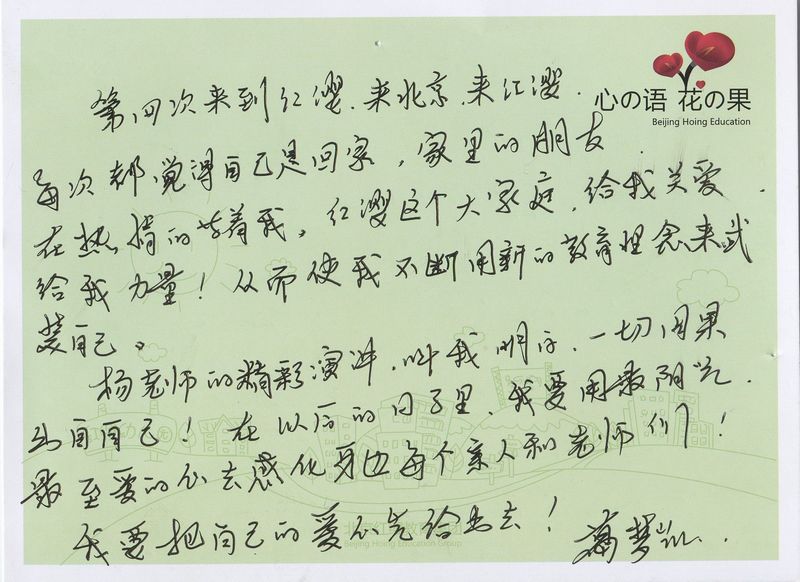 心の语 花の果
Beijing Hoing Education
第四次来到红缨.来北京.来红缨.
每次都觉得自己是回家,家里的朋友
在热情的等着我。红缨这个大家庭,给我关爱.
给我力量!从而使我不断用新的教育理念来武
装自己。
杨老师的精彩演讲,叫我明白,一切因果
出自自己!在以后的日子里,我要用最阳光.
最至爱的心去感化身边每个亲人和老师们!
我要把自己的爱心先给出去!
Beijing Hoing Education Group